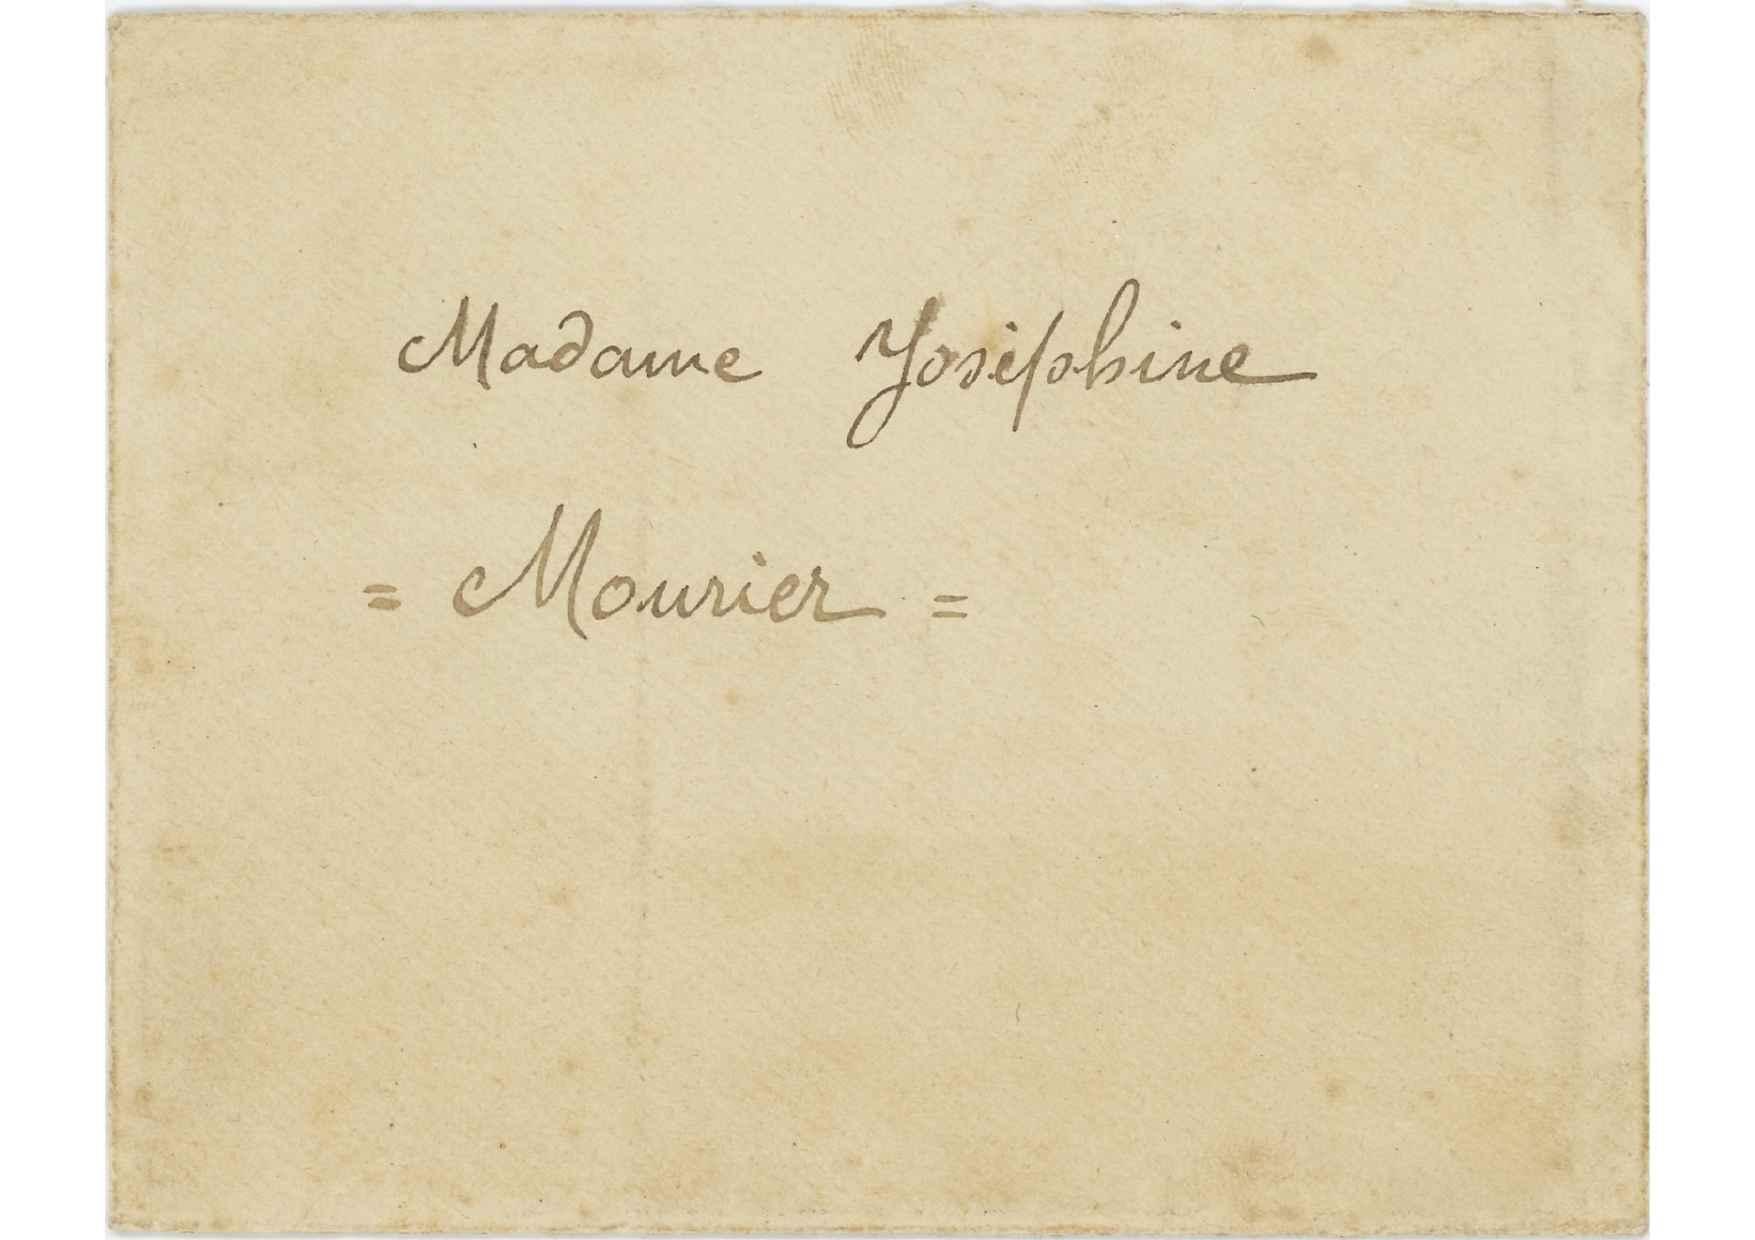 Madame Joséphine
= Mourier =